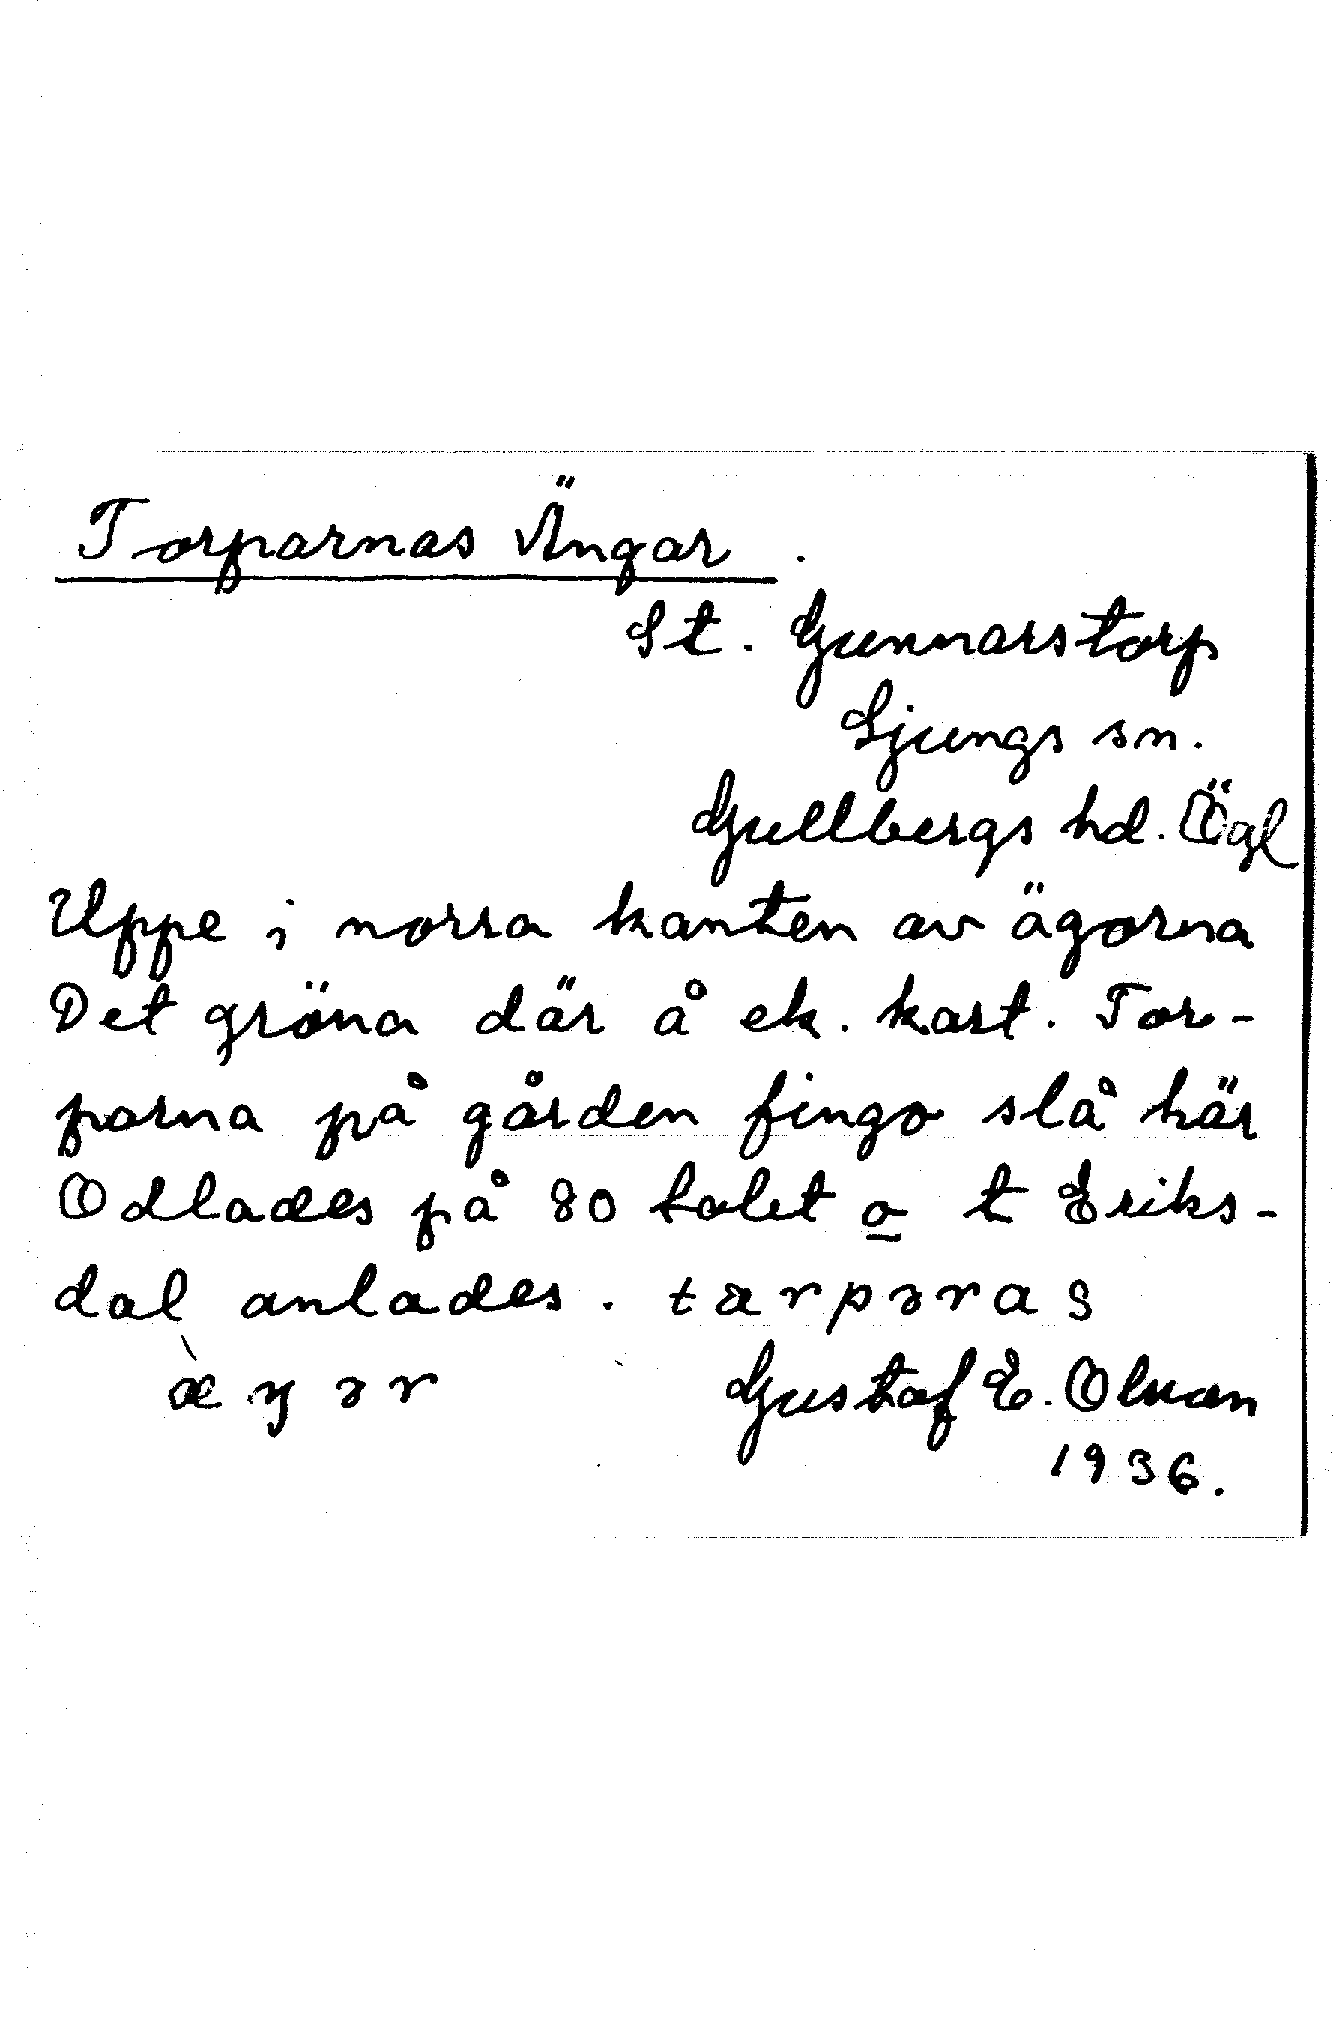 Torparnas Ängar.
St. Gunnarstorp
Ljungs sn.
Gullbergs hd. Ögl
Uppe i norra kanten av ägorna
Det gröna där å ek. kart. Tor-
parna på gården fingo slå här
Odlades på 80 talet o t Eriks-
dal anlades. tarpəras
æŋər Gustaf E.
1936.